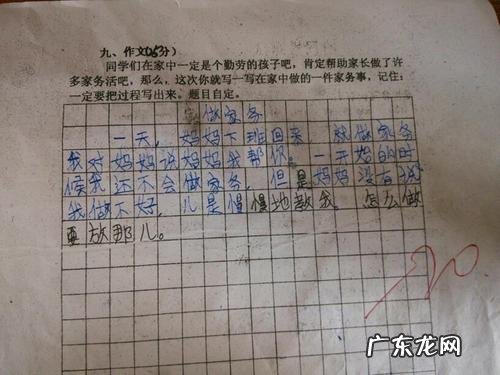 九、作文(25分)
同学们在家中一定是个勤劳的孩子吧，肯定帮助家长做了许
多家务活吧，那么，这次你就写一写在家中做的一件家务事，记住：
一定要把过程写出来。题目自定。
做家务
一天，妈妈下班回来 就做家务
我对妈妈说妈妈我帮你。一天始的时
候我还不会做家务，但是妈妈没有
我做不好，儿是慢慢地教我。怎么做
放那儿。
20
广东龙网